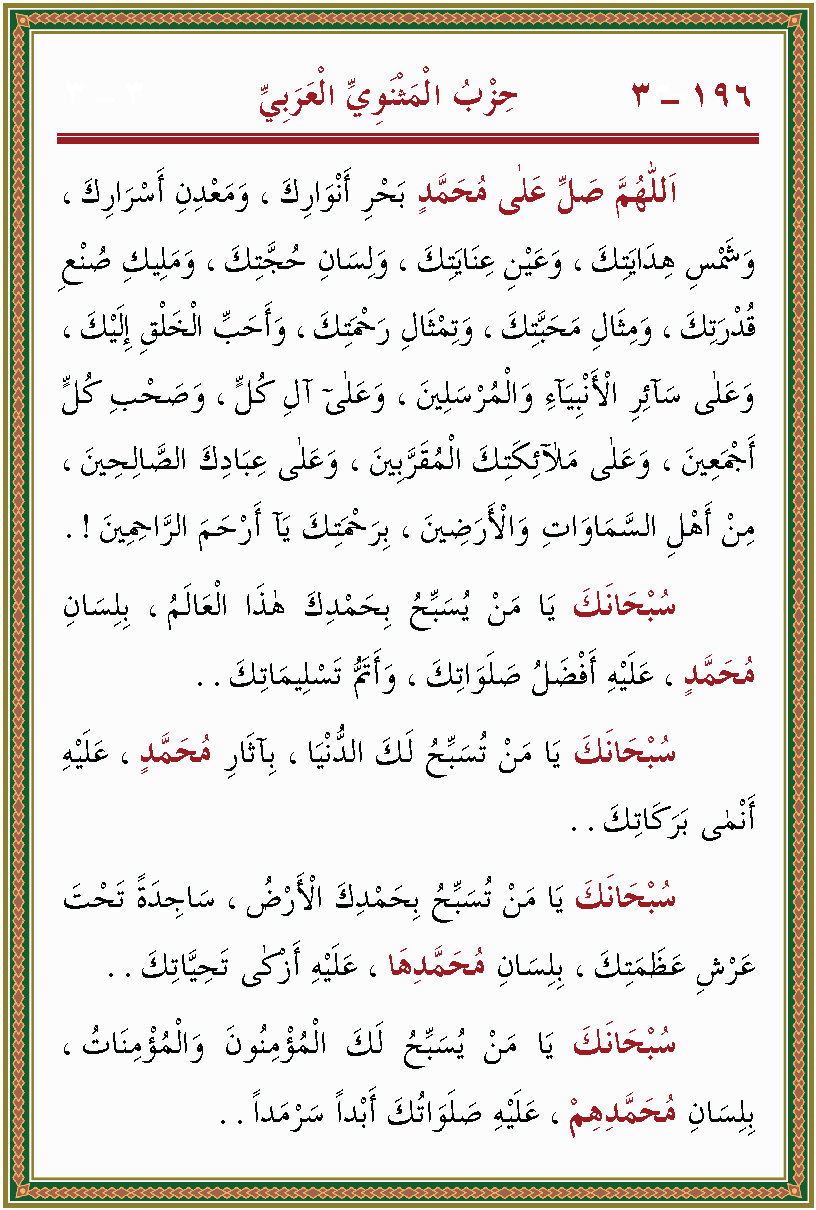 ١٩٦ - ٣ حِزْبُ الْمَثْنَوِيِّ الْعَرَبِيِّ
اَللّٰهُمَّ صَلِّ عَلٰى مُحَمَّدٍ بَحْرِ أَنْوَارِكَ ، وَمَعْدِنِ أَسْرَارِكَ ،
وَشَمْسِ هِدَايَتِكَ ، وَعَيْنِ عِنَايَتِكَ ، وَلِسَانِ حُجَّتِكَ ، وَمَلِيكِ صُنْعِ
قُدْرَتِكَ ، وَمِثَالِ مَحَبَّتِكَ ، وَتِمْثَالِ رَحْمَتِكَ ، وَأَحَبِّ الْخَلْقِ إِلَيْكَ ،
وَعَلٰى سَآئِرِ الْأَنْبِيَآءِ وَالْمُرْسَلِينَ ، وَعَلٰىٓ آلِ كُلٍّ ، وَصَحْبِ كُلٍّ
أَجْمَعِينَ ، وَعَلٰى مَلَآئِكَتِكَ الْمُقَرَّبِينَ ، وَعَلٰى عِبَادِكَ الصَّالِحِينَ ،
مِنْ أَهْلِ السَّمَاوَاتِ وَالْأَرَضِينَ ، بِرَحْمَتِكَ يَآ أَرْحَمَ الرَّاحِمِينَ ! .
سُبْحَانَكَ يَا مَنْ يُسَبِّحُ بِحَمْدِكَ هٰذَا الْعَالَمُ ، بِلِسَانِ
مُحَمَّدٍ ، عَلَيْهِ أَفْضَلُ صَلَوَاتِكَ ، وَأَتَمُّ تَسْلِيمَاتِكَ . .
سُبْحَانَكَ يَا مَنْ تُسَبِّحُ لَكَ الدُّنْيَا ، بِآثَارِ مُحَمَّدٍ ، عَلَيْهِ
أَنْمٰى بَرَكَاتِكَ . .
سُبْحَانَكَ يَا مَنْ تُسَبِّحُ بِحَمْدِكَ الْأَرْضُ ، سَاجِدَةً تَحْتَ
عَرْشِ عَظَمَتِكَ ، بِلِسَانِ مُحَمَّدِهَا ، عَلَيْهِ أَزْكٰى تَحِيَّاتِكَ . .
سُبْحَانَكَ يَا مَنْ يُسَبِّحُ لَكَ الْمُؤْمِنُونَ وَالْمُؤْمِنَاتُ ،
بِلِسَانِ مُحَمَّدِهِمْ ، عَلَيْهِ صَلَوَاتُكَ أَبْداً سَرْمَداً . .